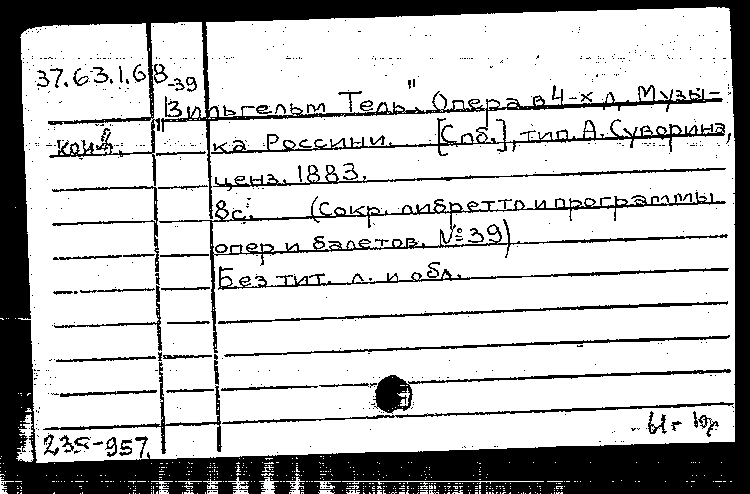 37.63.1.68-39
"Вильгельм Телль". Опера в 4-х д. Музы-
ка Россини. [Спб.], тип. А. Суворина,
ценз. 1883.
8с. (Сокр. либретто и программы
опер и балетов. №39)
Без тит. л. и обл.